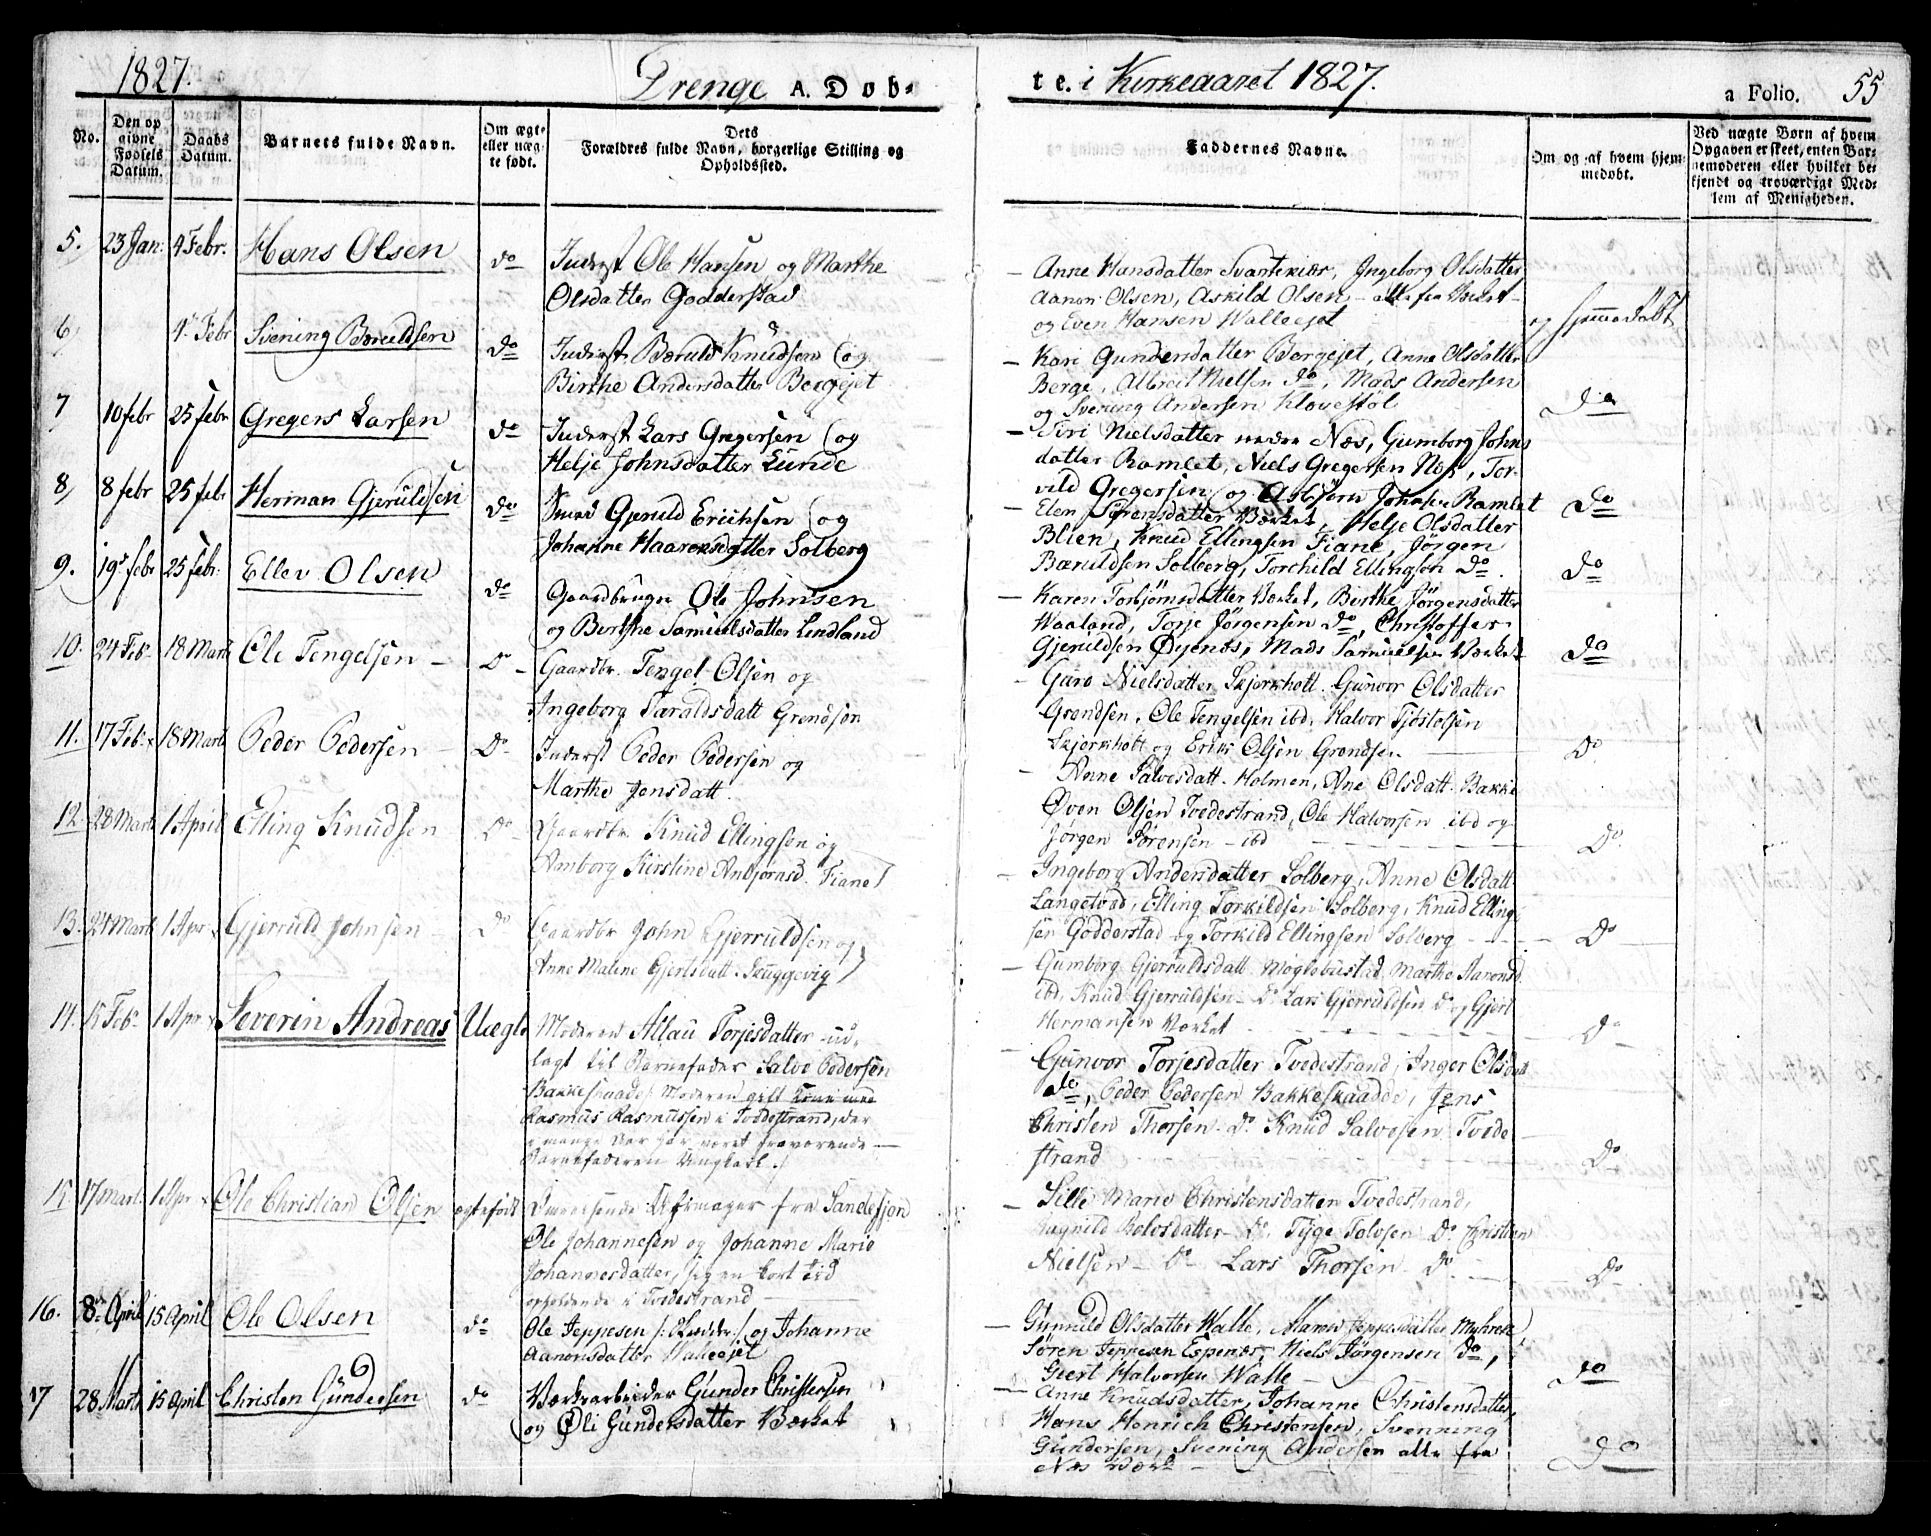 1827.
Drenge A. Døb-
te. i Kirkeaaret 1827.
a Folio. 55
No.
Den op
givne
Fødsels
Datum.
Daabs
Datum.
Barnets fulde Navn.
Om ægt-
eller uæg-
te født.
Dets
Forældres fulde Navn, borgerlige Stilling og
Opholdssted.
Faddernes Navne.
Om og af hvem hjem-
medøbt.
Ved uægte Børn af hvem
Opgaven er skeet, enten Bar-
nemoderen eller hvilket be-
kjendt og troværdigt Med-
lem af Menigheden.
5. 23 Jan: 4 Febr. Hans Olsen do
Inderst Ole Hansen og Marthe
Olsdatter Godderstad
Anne Hansdatter Svartekiær, Ingeborg Olsdatter
Aanon Olsen, Askild Olsen - alle fra Værket -
og Even Hansen Walleejet
og Hjemmedøbt
6 4 Febr Svening Bæruldsen do
Inderst Bæruld Knudsen og
Birthe Andersdatter Bergejet
Kari Gundersdatter Bergejet, Anne Olsdatter
Berge, Albret Nielsen do, Mads Andersen
og Svening Andersen Kløvestøl
do
7 10 febr 25 febr Gregers Larsen do
Inderst Lars Gregersen og
Helje Johnsdatter Lunde
Siri Nielsdatter nedre Næs, Gumborg Johns
datter Ramlet, Niels Gregersen Næs, Tor-
vild Gregersen og Asbjørn Johnsen Ramlet
do
8 8 febr 25 febr Herman Gjeruldsen do
Smed Gjeruld Erichsen og
Johanne Haaronsdatter Solberg
Elen Sørensdatter Værket, Helje Olsdatter
Blien, Knud Ellingsen Fiane, Jørgen
Bæruldsen Solberg, Torchild Ellingsøn do.
do
9. 19 febr 25 febr. Ellev Olsen do
Gaardbruger Ole Johnsen
og Berthe Samuelsdatter Lindland
Karen Torbjørnsdatter Værket, Birthe Jørgensdatter
Waaland, Torje Jørgensen do, Christoffer
Gjeruldsen Øyenes, Mads Samuelsen Værket
do
10. 24 Feb. 18 Marts Ole Tengelsen Do
Gaardbr. Tengel Olsen og
Ingeborg Taraldsdatt Grendsøn
Guro Nielsdatter Skjerkholt. Gunvor Olsdatter
Grendsen, Ole Tengelsen ibd, Halvor Tjøstolsen
Skjerkholt og Erik Olsen Grendsen
Do
11. 17 Feb. 18 Marts Peder Pedersen Do
Inderst Peder Pedersen og
Marthe Jensdatt.
Anne Salvesdatt. Holmen, Ane Olsdatt. Bakke
Øven Olsen Tvedestrand, Ole Halvorsen ibd og
Jørgen Sørensen - ibd
Do
12. 28 Marts 1 April Elling Knudsen Do
Gaardbr Knud Ellingsen og
Amborg Kirstine Anbjørnsd. Fiane
Ingeborg Andersdatter Solberg, Anne Olsdatt.
Langestad, Elling Torkildsen Solberg, Knud Elling-
sen Godderstad og Torkild Ellingsen Solberg
Do
13. 24 Marts 1 Apr Gjerruld Johnsen Do
Gaardbr John Gjerruldsen og
Anne Malene Gjertsdatt. Skuggevig
Gumborg Gjerruldsdatt Møglebustad, Marthe Aaronsd
ibd, Knud Gjerruldsen - Do Lars Gjerruldsen Do og Gjert
Hermansen Værket
Do
14. 15 Feb. 1 Apr Severin Andreas Uægte
Moderen Allau Torjesdatter ud-
lagt til Barnefader Salve Pedersen
Bakkeskaade / Moderen gift Kone med
Rasmus Rasmussen i Tvedestrand, der
i mange Aar har været fraværende
Barnefaderen Ungkarl.
Gunvor Torjesdatter Tvedestrand, Inger Olsdatt
do, Peder Pedersen Bakkeskaadde, Jens
Christen Thorsen Do Knud Salvesen Tvede
strand
Do
15 17 Marts 1 Apr Ole Christian Olsen ægtefødt
fra Sandefjon
Ole Johannesen og Johanne Marie
Johannesdatter, sig en kort tid
opholdende i Tvedestrand
Sille Marie Christensdatter Tvedestrand,
Do, Tyge Tolvsen Do Christian
Nielsen Do Lars Thorsen Do
Do
16. 8 April 15 April Ole Olsen do
Ole Jeppesen og Johanne
Aanonsdatter Walleejet
Gynnild Olsdatter Walle, Maren Jeppesdatter Myhren,
Søren Jeppesen Espenæs, Niels Jørgensen do,
Geert Halvorsen Walle
do
17 28 Marts 15 April Christen Gundersen do
Værksarbeider Gunder Christensen
og Oli Gundersdatter Værket
Anne Knudsdatter, Johanne Christensdatter
Hans Henrich Christensen, Svenning
Gundersen, Svening Andersen alle fra
Næs Værk
Do